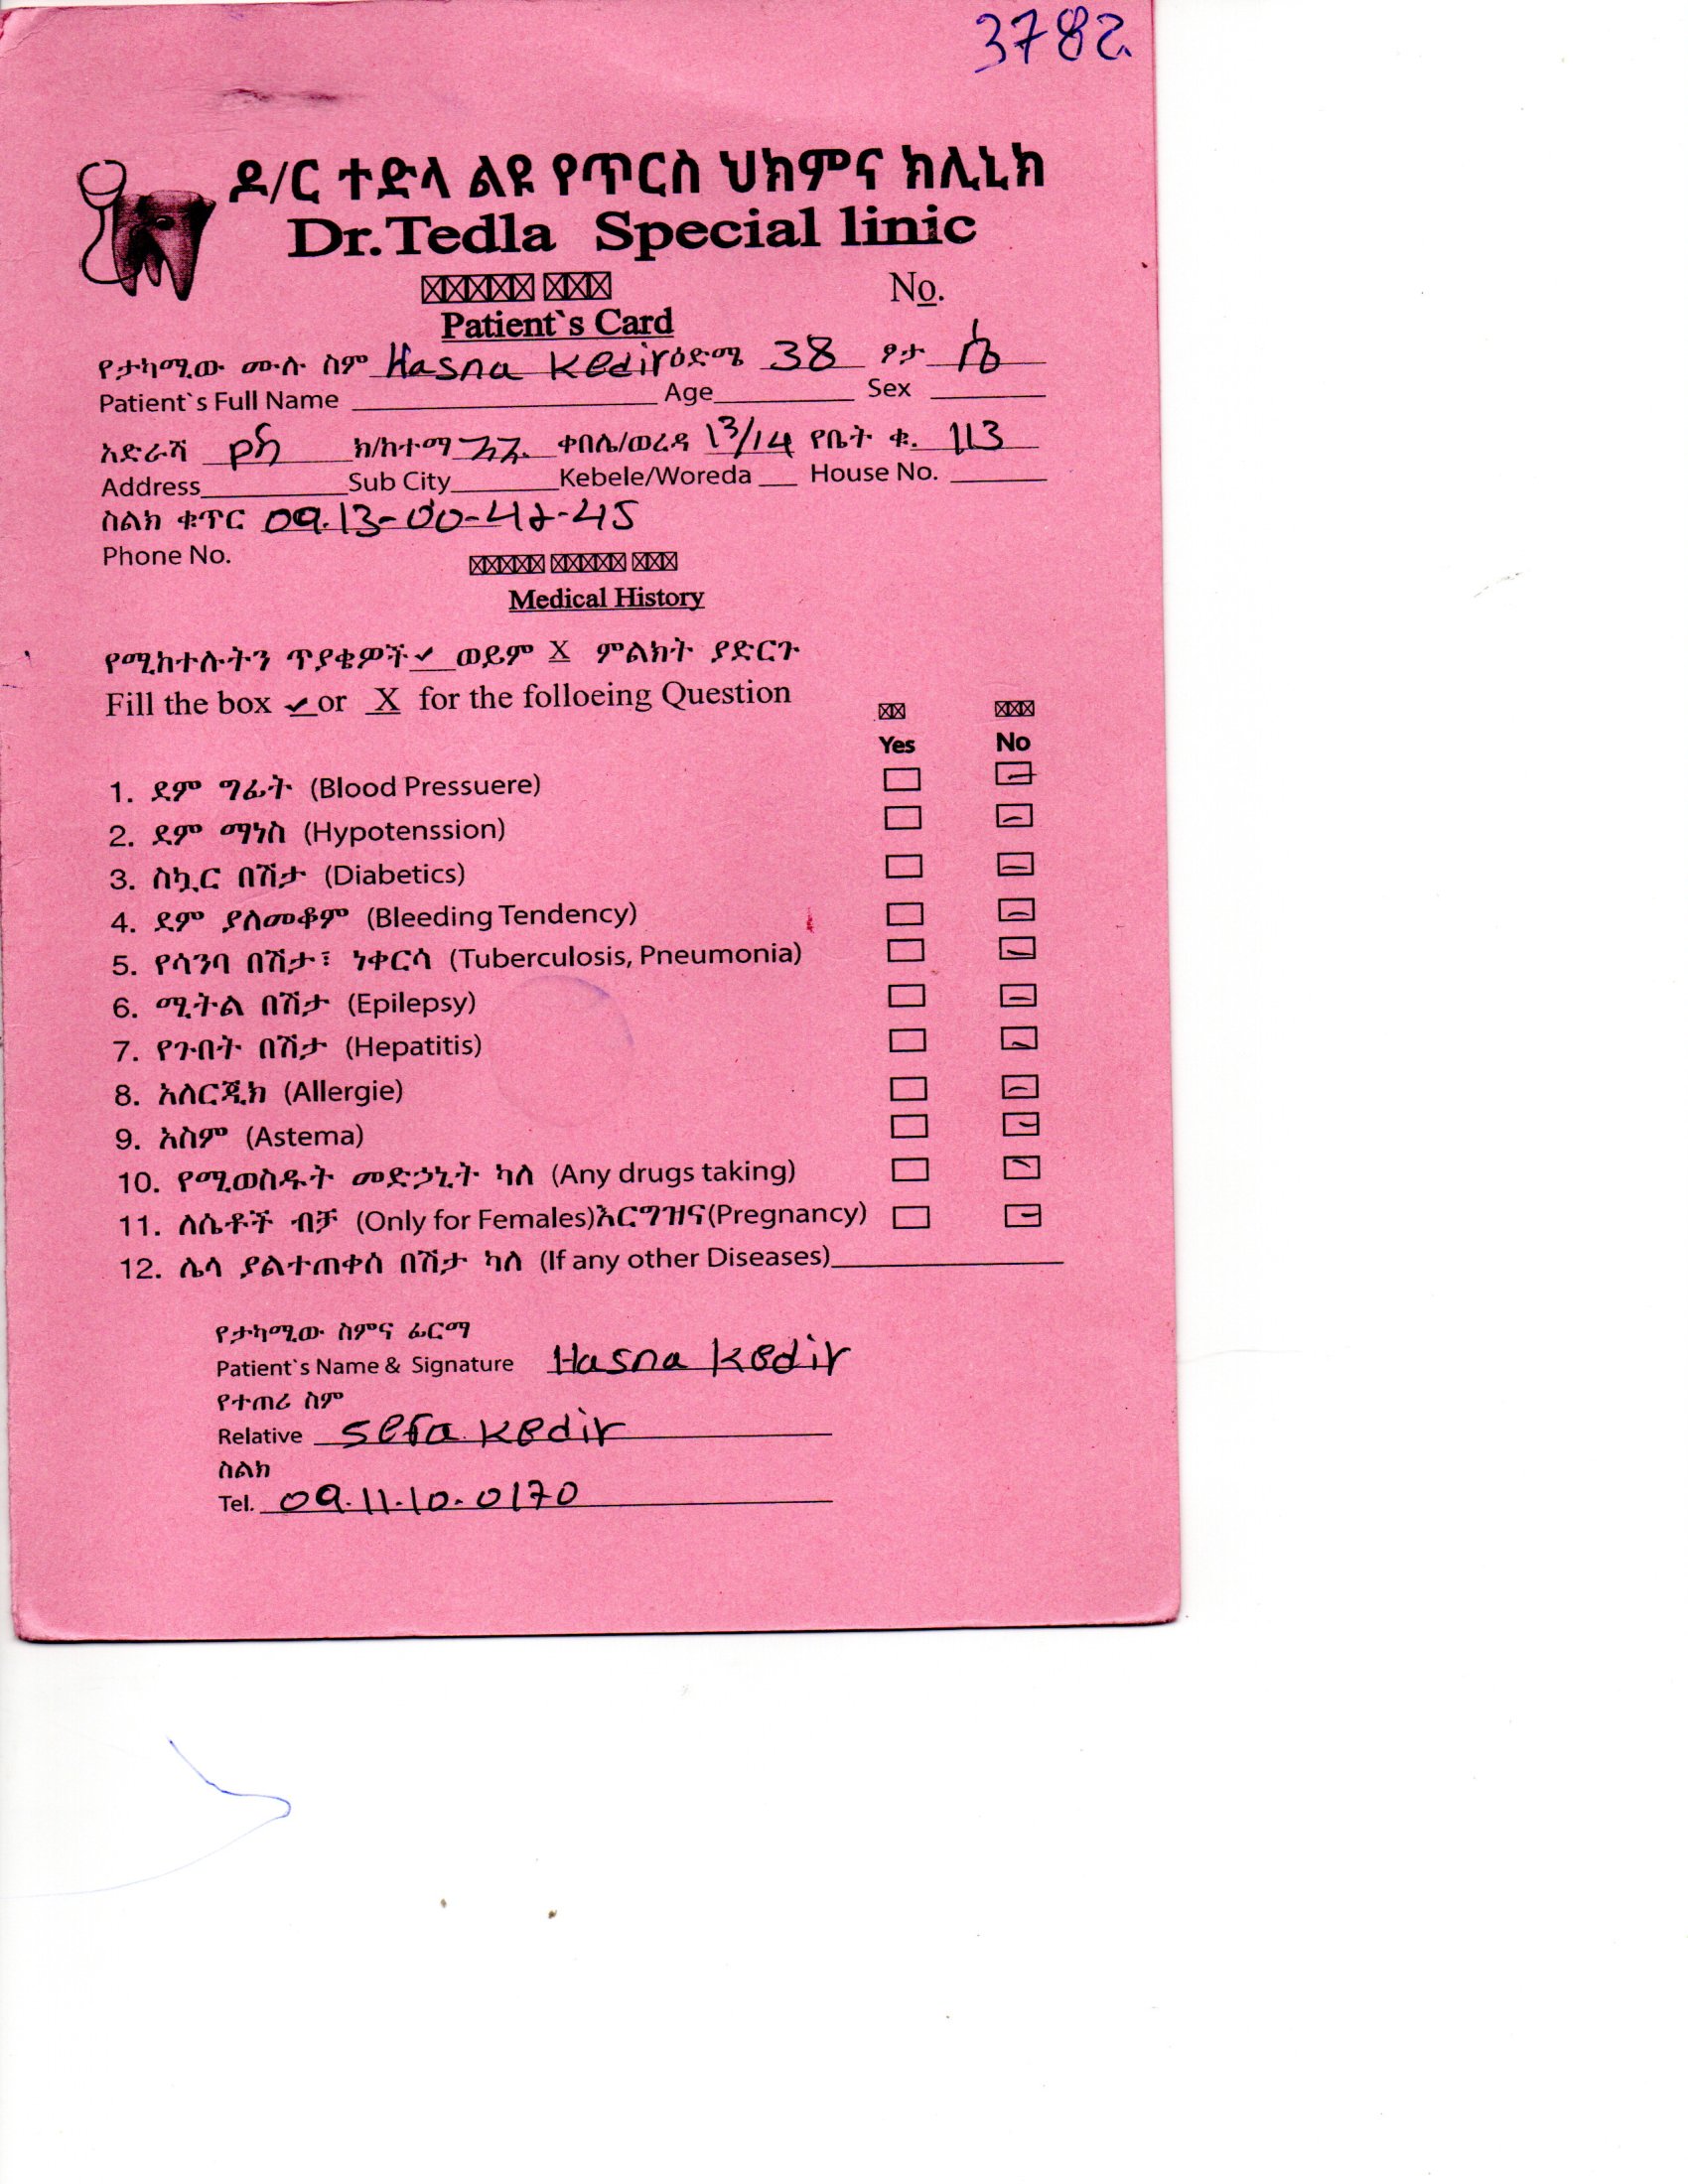 3782
ዶ/ር ተድላ ልዩ የጥርስ ህክምና ክሊኒክ
Dr.Tedla Special linic
No.
Patient`s Card
የታካሚው ሙሉ ስም Hasna Kedir ዕድሜ 38 ፆታ ሴ
Patient`s Full Name Age Sex
አድራሻ ክ/ከተማ ቀበሌ/ወረዳ 13/14 የቤት ቁ. 113
Address Sub City Kebele/Woreda House No.
ስልክ ቁጥር 09.13-00-42-45
Phone No.
Medical History
የሚከተሉትን ጥያቄዎች ✓ ወይም X ምልክት ያድርጉ
Fill the box ✓ or X for the folloeing Question
Yes No
1. ደም ግፊት (Blood Pressuere)
2. ደም ማነስ (Hypotenssion)
3. ስኳር በሽታ (Diabetics)
4. ደም ያለመቆም (Bleeding Tendency)
5. የሳንባ በሽታ፣ ነቀርሳ (Tuberculosis, Pneumonia)
6. ሚትል በሽታ (Epilepsy)
7. የጉበት በሽታ (Hepatitis)
8. አለርጂክ (Allergie)
9. አስም (Astema)
10. የሚወስዱት መድኃኒት ካለ (Any drugs taking)
11. ለሴቶች ብቻ (Only for Females)እርግዝና(Pregnancy)
12. ሌላ ያልተጠቀሰ በሽታ ካለ (If any other Diseases)
የታካሚው ስምና ፊርማ
Patient`s Name & Signature Hasna Kedir
የተጠሪ ስም
Relative Sefa Kedir
ስልክ
Tel. 09.11.10.0170